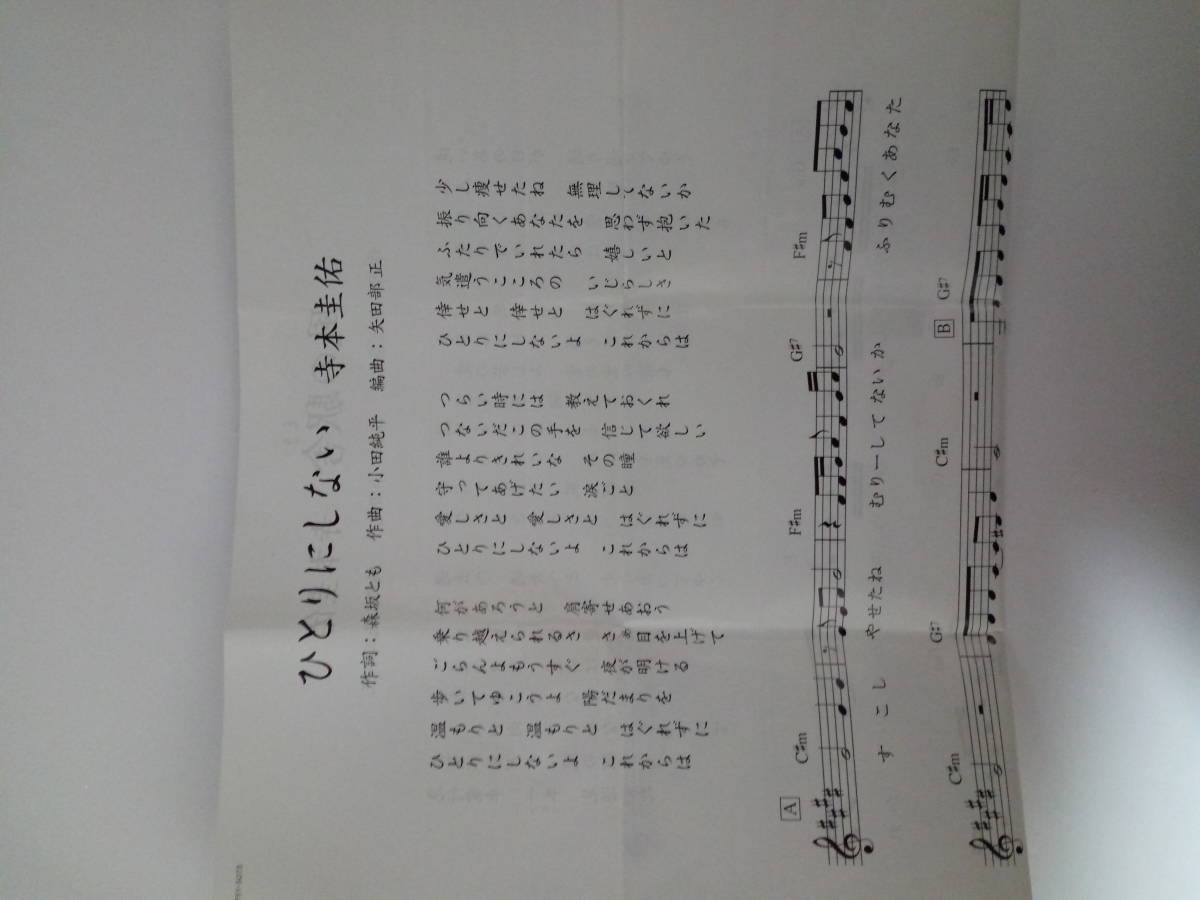 ひとりにしない 寺本圭佑
作詞：森坂とも 作曲：小田純平 編曲：矢田部 正
少し痩せたね 無理してないか
振り向くあなたを 思わず抱いた
ふたりでいれたら 嬉しいと
気遣うこころの いじらしさ
倖せと 倖せと はぐれずに
ひとりにしないよ これからは
つらい時には 教えておくれ
つないだこの手を 信じて欲しい
誰よりきれいな その瞳
守ってあげたい 涙ごと
愛しさと 愛しさと はぐれずに
ひとりにしないよ これからは
何があろうと 肩寄せあおう
乗り越えられるさ さぁ目を上げて
ごらんよもうすぐ 夜が明ける
歩いてゆこうよ 陽だまりを
温もりと 温もりと はぐれずに
ひとりにしないよ これからは
A
C♯m F♯m G♯7 F♯m
す こ し やせたね むりーしてないか ふりむくあなた
C♯m G♯7 C♯m B G♯7